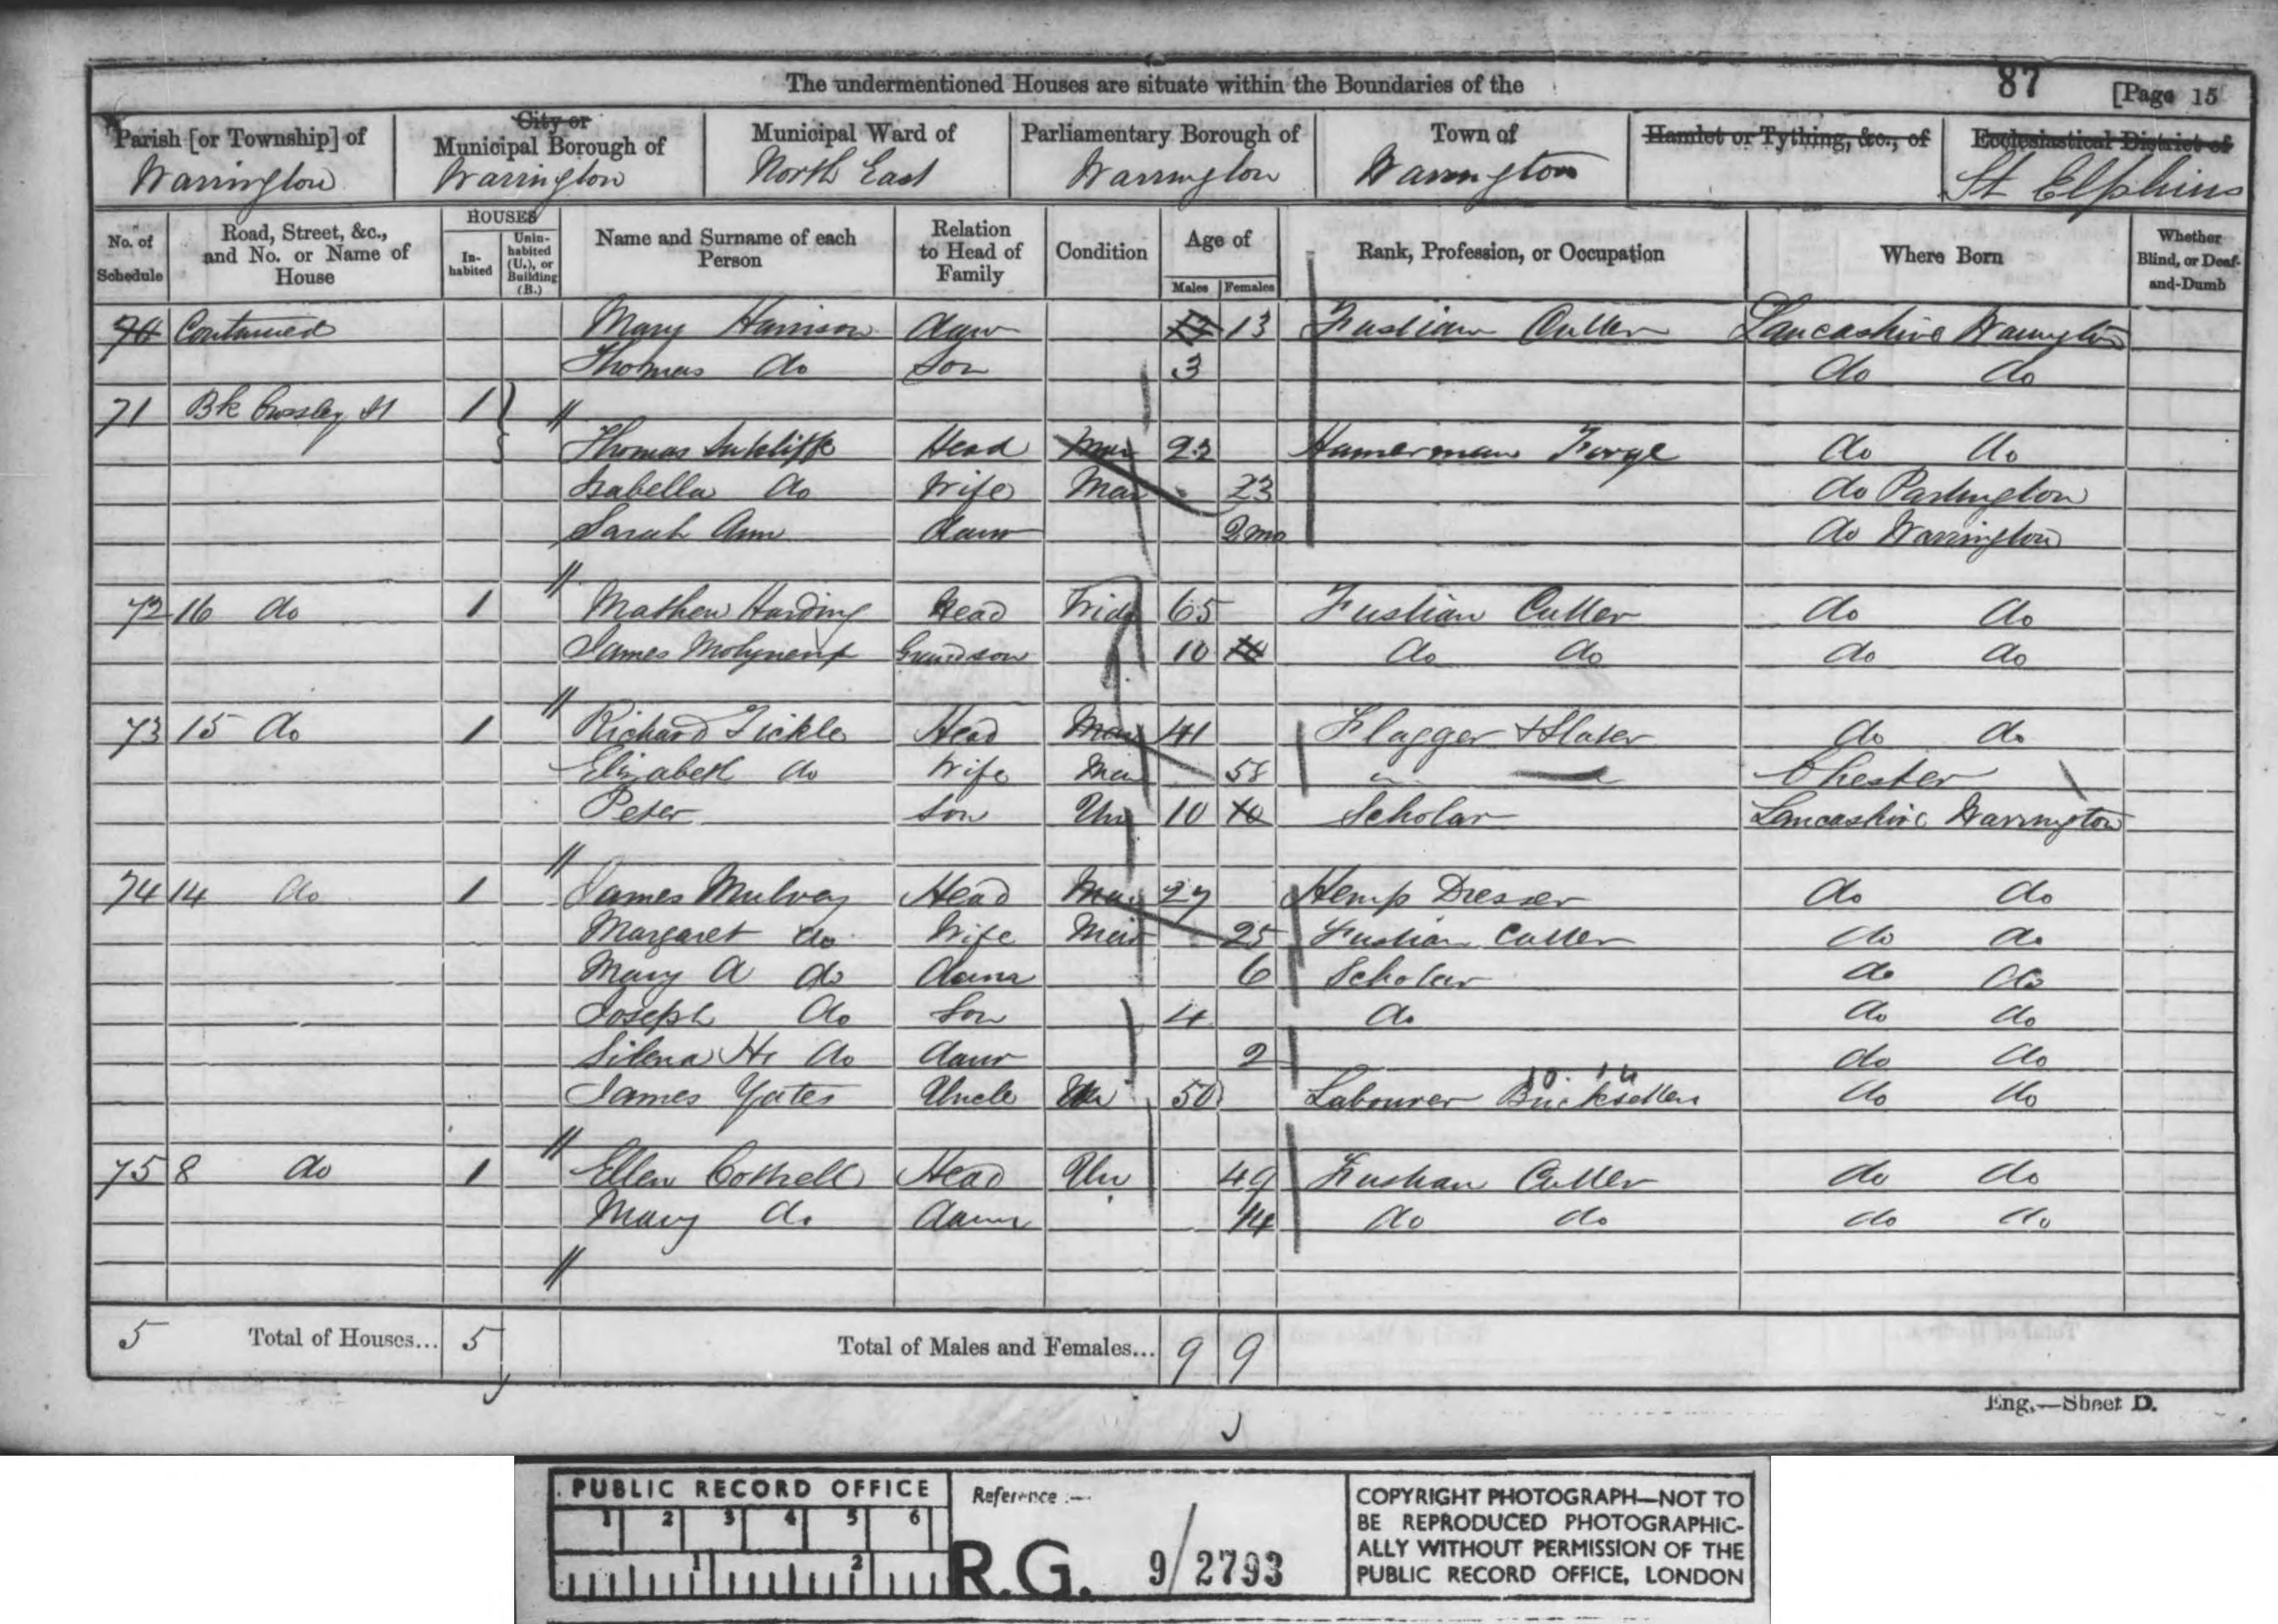 The undermentioned Houses are situate within the Boundaries of the 87 [Page 15
Parish [or Township] of City or Municipal Borough of Municipal Ward of Parliamentary Borough of Town of Hamlet or Tything, &c., of Ecclesiastical District of
Warrington Warrington North East Warrington Warrington St Elphins
No. of Schedule Road, Street, &c., and No. or Name of House HOUSES Inhabited Uninhabited (U.), or Building (B.) Name and Surname of each Person Relation to Head of Family Condition Age of Males Females Rank, Profession, or Occupation Where Born Whether Blind, or Deaf-and-Dumb
70 Continued Mary Harrison daur 13 Fustian Cutter Lancashire Warrington
Thomas do Son 3 do do
71 Bk Crossley St 1
Thomas Sutcliffe Head Mar 23 Hamerman Forge do do
Isabella do Wife Mar 23 do Partington
Sarah Ann daur 2mo do Warrington
72 16 do 1 Mathew Harding Head Widr 65 Fustian Cutter do do
James Molyneux Grandson 10 do do do do
73 15 do 1 Richard Tickle Head Mar 41 Flagger & Slater do do
Elizabeth do Wife Mar 58 Chester
Peter Son Un 10 10 Scholar Lancashire Warrington
74 14 do 1 James Mulvay Head Mar 27 Hemp Dresser do do
Margaret do Wife Mar 25 Fustian Cutter do do
Mary A do daur 6 Scholar do do
Joseph do Son 4 do do do
Silena H do daur 2 do do
James Yates Uncle Un 50 Labourer do do
75 8 do 1 Ellen Cottrell Head Un 49 Fustian Cutter do do
Mary do daur 14 do do do do
5 Total of Houses... 5 Total of Males and Females... 9 9
Eng.—Sheet D.
PUBLIC RECORD OFFICE
1 2 3 4 5 6
1 2
Reference :—
R.G. 9/2793
COPYRIGHT PHOTOGRAPH—NOT TO
BE REPRODUCED PHOTOGRAPHIC-
ALLY WITHOUT PERMISSION OF THE
PUBLIC RECORD OFFICE, LONDON